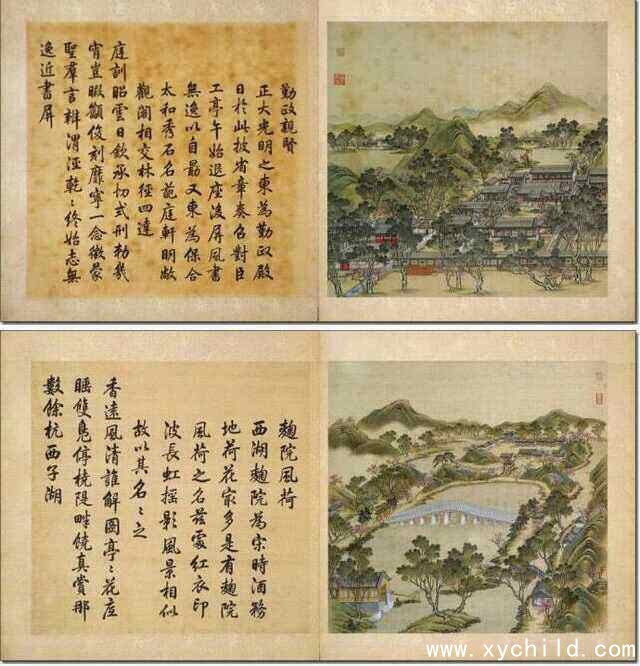 勤政親賢
正大光明之東為勤政殿
日於此披省章奏召對臣
工亭午始退座後屏風書
無逸以自勗又東為保合
太和秀石名葩庭軒明敞
觀閣相交林徑四達
庭訓昭雲日欽承切式刑勑幾
宵豈暇籲俊刻靡寧一念徵蒙
聖羣言辨渭涇乾〻終始志無
逸近書屏
麯院風荷
西湖麯院為宋時酒務
地荷花冣多是有麯院
風荷之名茲處紅衣印
波長虹摇影風景相似
故以其名〻之
香遠風清誰解圖亭〻花底
睡雙鳧停橈隄畔饒真賞那
數餘杭西子湖
www.xychild.com